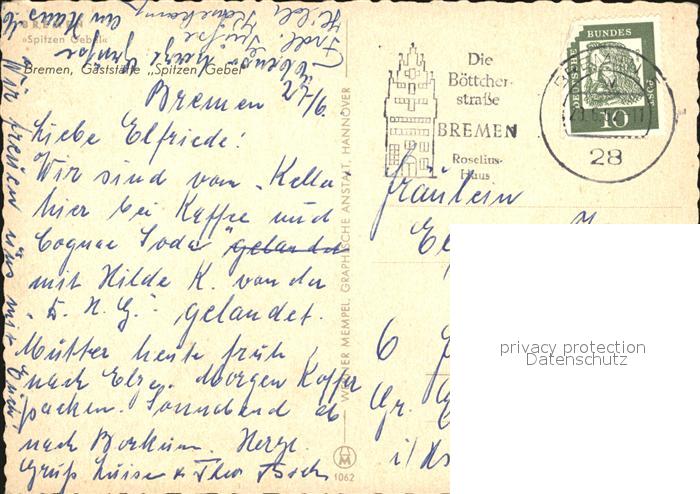 BREMEN
»Spitzen Gebel«
Bremen, Gaststätte „Spitzen Gebel"
Bremen 27/6.
Liebe Elfriede!
Wir sind vom „Kella"
hier bei Kaffee und
Cognac Soda" gelandet
mit Hilde K. von der
"D. H. G." gelandet.
Mutter heute früh
nach Elze. Morgen Koffer
packen. Sonnabend ab
nach Borkum. Herzl.
Gruß Luise u. Theo
Wir freuen uns mit Euch
WERNER MEMPEL, GRAPHISCHE ANSTALT, HANNOVER
1062
Die
Böttcher-
straße
BREMEN
Roselius-
Haus
DEUTSCHE BUNDESPOST
10
28
Fräulein
6
Gr.
privacy protection
Datenschutz